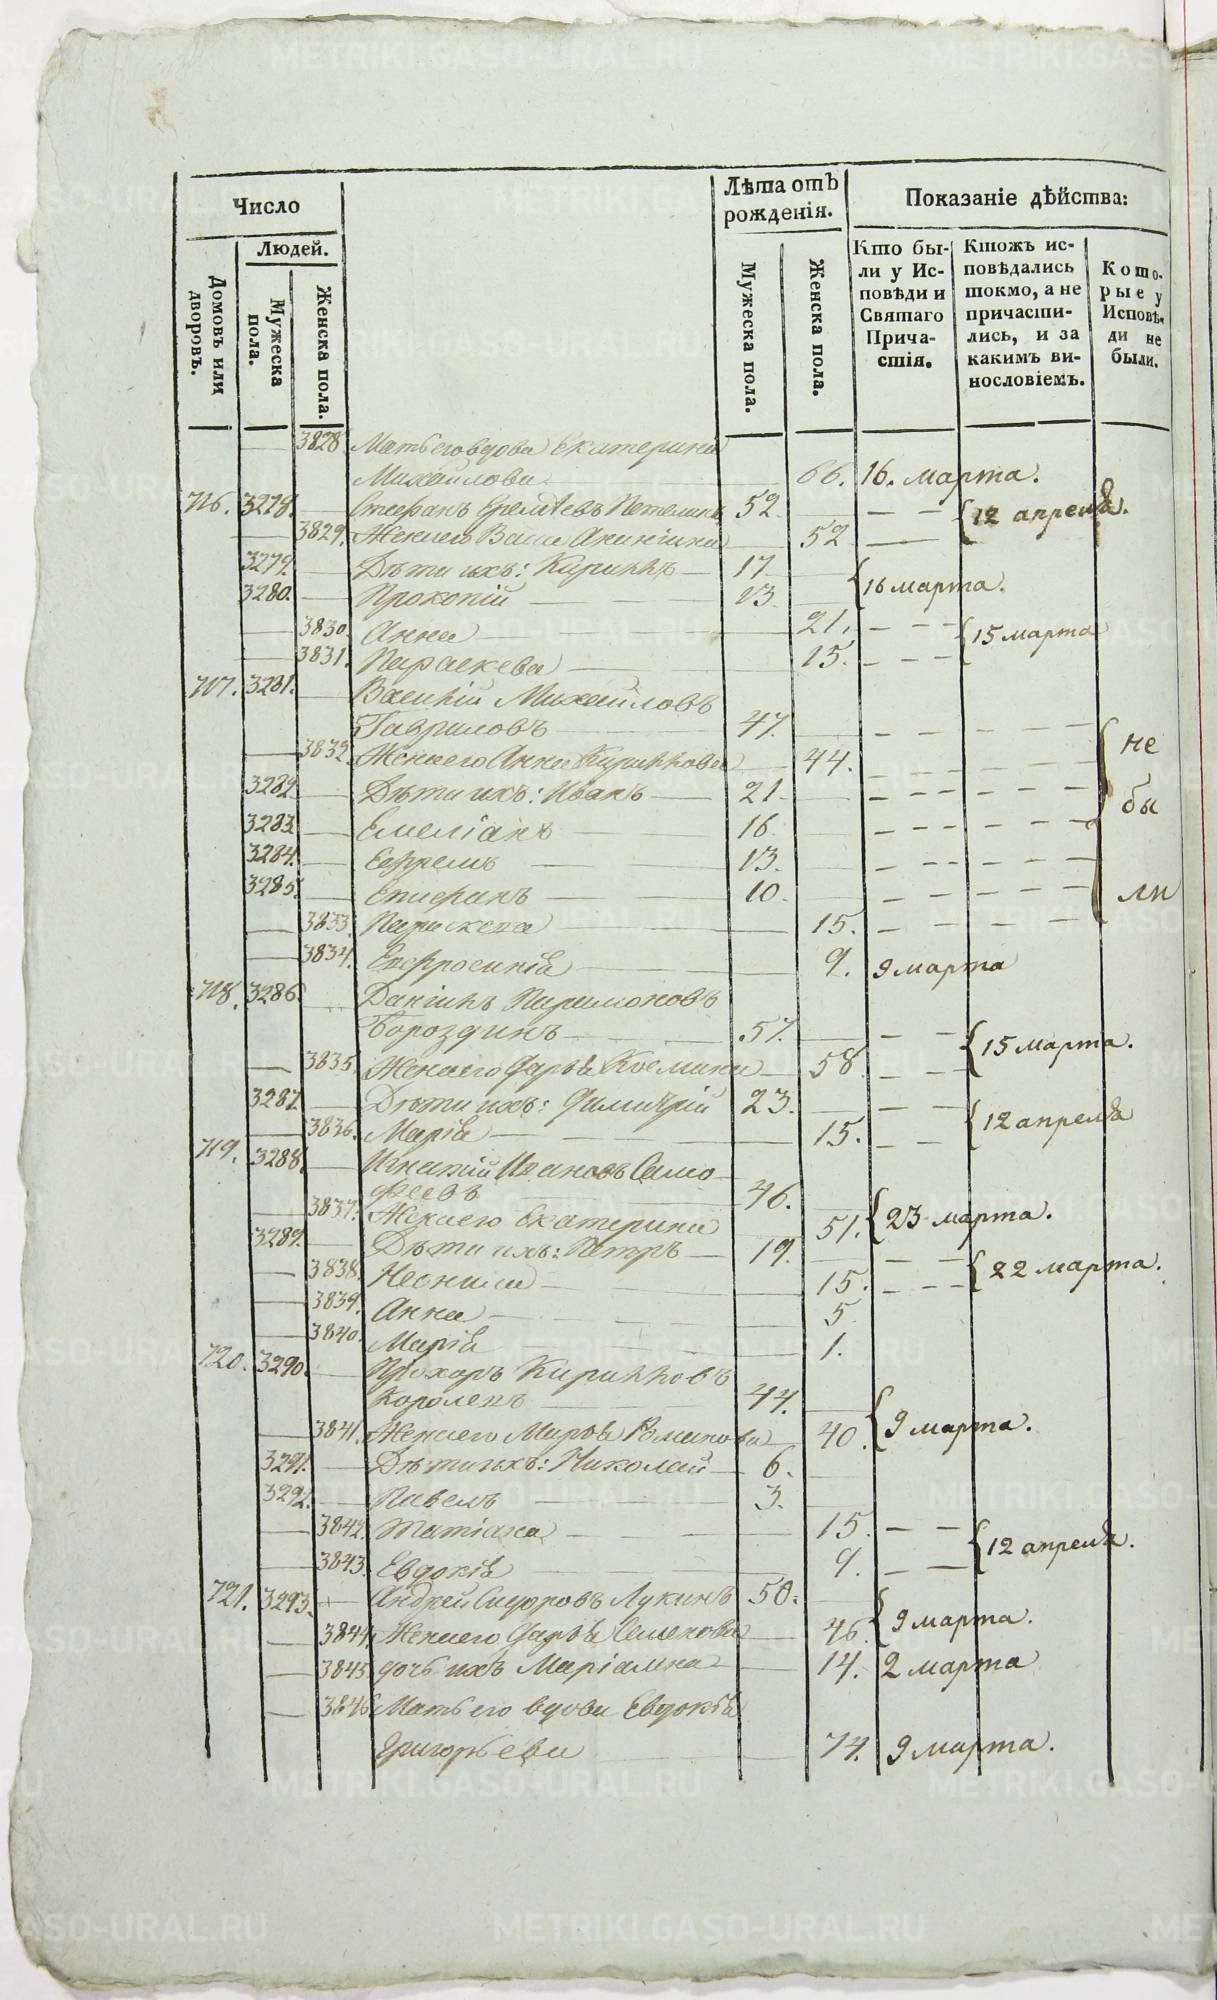 Число
Людей.
Домовъ или дворовъ.
Мужеска пола.
Женска пола.
Лѣта отъ рожденія.
Мужеска пола.
Женска пола.
Показаніе дѣйства:
Кто бы-
ли у Ис-
повѣди и
Святаго
Прича-
стія.
Ктожъ ис-
повѣдались
токмо, а не
причасти-
лись, и за
какимъ ви-
нословіемъ.
Кото-
рые у
Исповѣ-
ди не
были.
3828 Мать его вдова Екатерина
Михайлова 66. 16. марта.
716. 3278. Стефанъ Еремѣевъ Петелинъ 52 12 апреля.
3829. Жена его Васса 52
3279 Дѣти ихъ: Кириллъ 17 16 марта.
3280. Прокопій 13
3830. Анна 21. 15 марта
3831. Параскева 15.
717. 3281. Василій Михайловъ
Гавриловъ 47. не
3832. Жена его Анна Кириллова 44.
3282 Дѣти ихъ: Иванъ 21 бы
3283 Емеліанъ 16
3284. Ефремъ 13.
3285. Стефанъ 10. ли
3833. Параскева 15.
3834. Евфросинія 9. 9 марта
718. 3286. Даніилъ Парамоновъ
Бороздинъ 57. 15 марта.
3835. Жена его Дарья Космина 58
3287 Дѣти ихъ: Димитрій 23. 12 апреля
3836. Марія 15.
719. 3288. Игнатій Ивановъ
46.
3837. Жена его Екатерина 51. 23 марта.
3289. Дѣти ихъ: Петръ 19. 22 марта.
3838. Неонила 15.
3839. Анна 5
3840. Марія 1.
720. 3290. Прохоръ Кирилловъ
Королевъ 44. 9 марта.
3841. Жена его Марѳа Романова 40.
3291. Дѣти ихъ: Николай 6.
3292. Павелъ 3.
3842. Татіана 15. 12 апреля.
3843. Евдокія 9.
721. 3293. Андрей Сидоровъ Лукинъ 50. 9 марта.
3844. Жена его Дарья Семенова 46
3845 дочь ихъ Маріамна 14. 2 марта
3846 Мать его вдова Евдокія
Григорьева 74. 9 марта.
METRIKI.GASO-URAL.RU